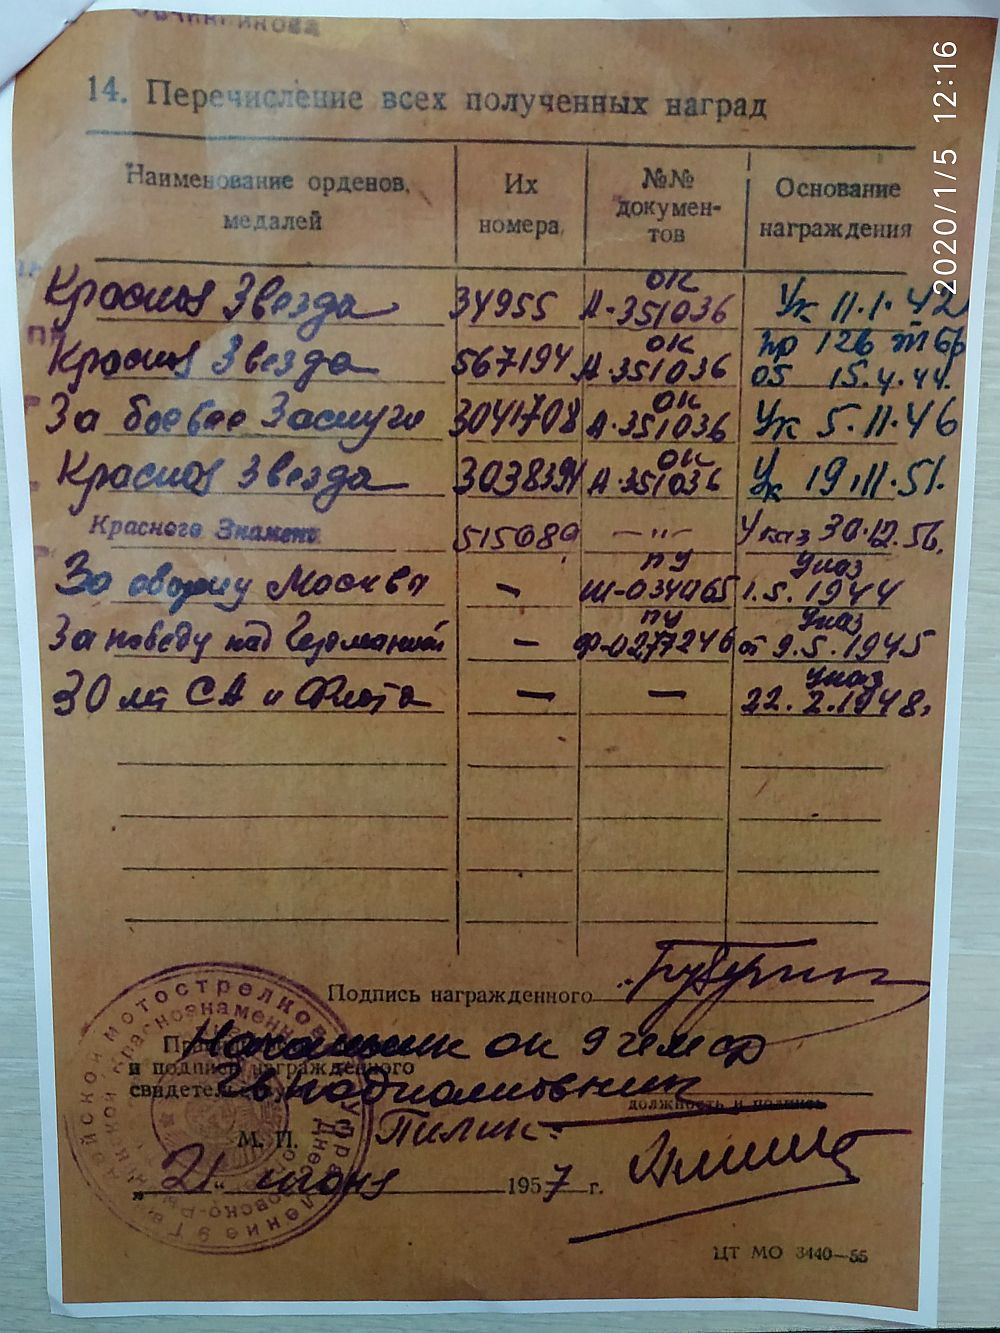 14. Перечисление всех полученных наград
Наименование орденов, медалей
Их номера
№№ документов
Основание награждения
Красная Звезда 34955 ОК А-351036 Ук 11.1.42
Красная Звезда 567194 ОК А-351036 пр 126 тбр 05 15.4.44.
За боевые Заслуги 3041708 ОК А-351036 Ук 5.11.46
Красная Звезда 3038394 ОК А-351036 Ук 19.11.51.
Красного Знамени 515089 —"— Указ 30.12.56.
За оборону Москвы — ПУ Ш-034065 Указ 1.5.1944
За победу над Германией — ПУ Ф-0277246 Указ от 9.5.1945
30 лет СА и Флота — — Указ 22.2.1948г
Подпись награжденного
Начальник ок 9
и подпись награжденного
свидетельствую
подполковник
должность и подпись
М. П. Пилик
„21“ июня 1957 г.
ЦТ МО 3440—55
2020/1/5 12:16